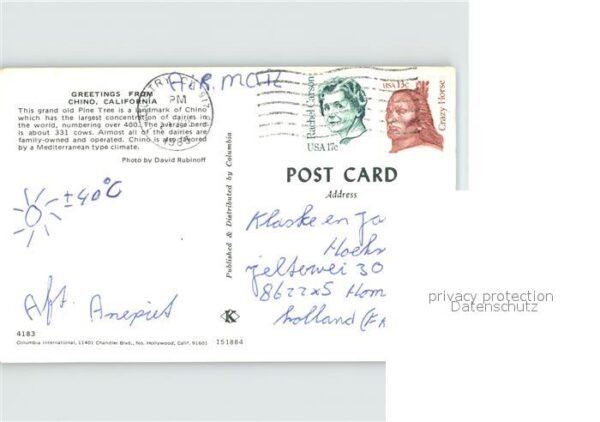 AIR MAIL
GREETINGS FROM
CHINO, CALIFORNIA
This grand old Pine Tree is a landmark of Chino
which has the largest concentration of dairies in
the world, numbering over 400. The average herd
is about 331 cows. Almost all of the dairies are
family-owned and operated. Chino is also favored
by a Mediterranean type climate.
Photo by David Rubinoff
PM
Rachel Carson
USA 17c
USA 13c
Crazy Horse
POST CARD
Address
± 40°C
Aft. Anepiet
Published & Distributed by Columbia
Klaske en Ja
Hoek
jelterwei 30
8622XS Hom
Holland
privacy protection
Datenschutz
K
4183
Columbia International, 11401 Chandler Blvd., No. Hollywood, Calif. 91601
151884